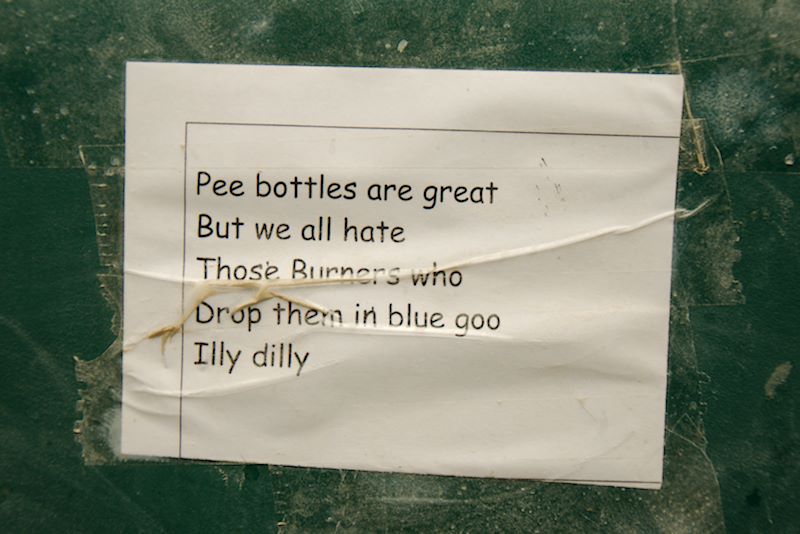 Pee bottles are great
But we all hate
Those Burners who
Drop them in blue goo
Illy dilly